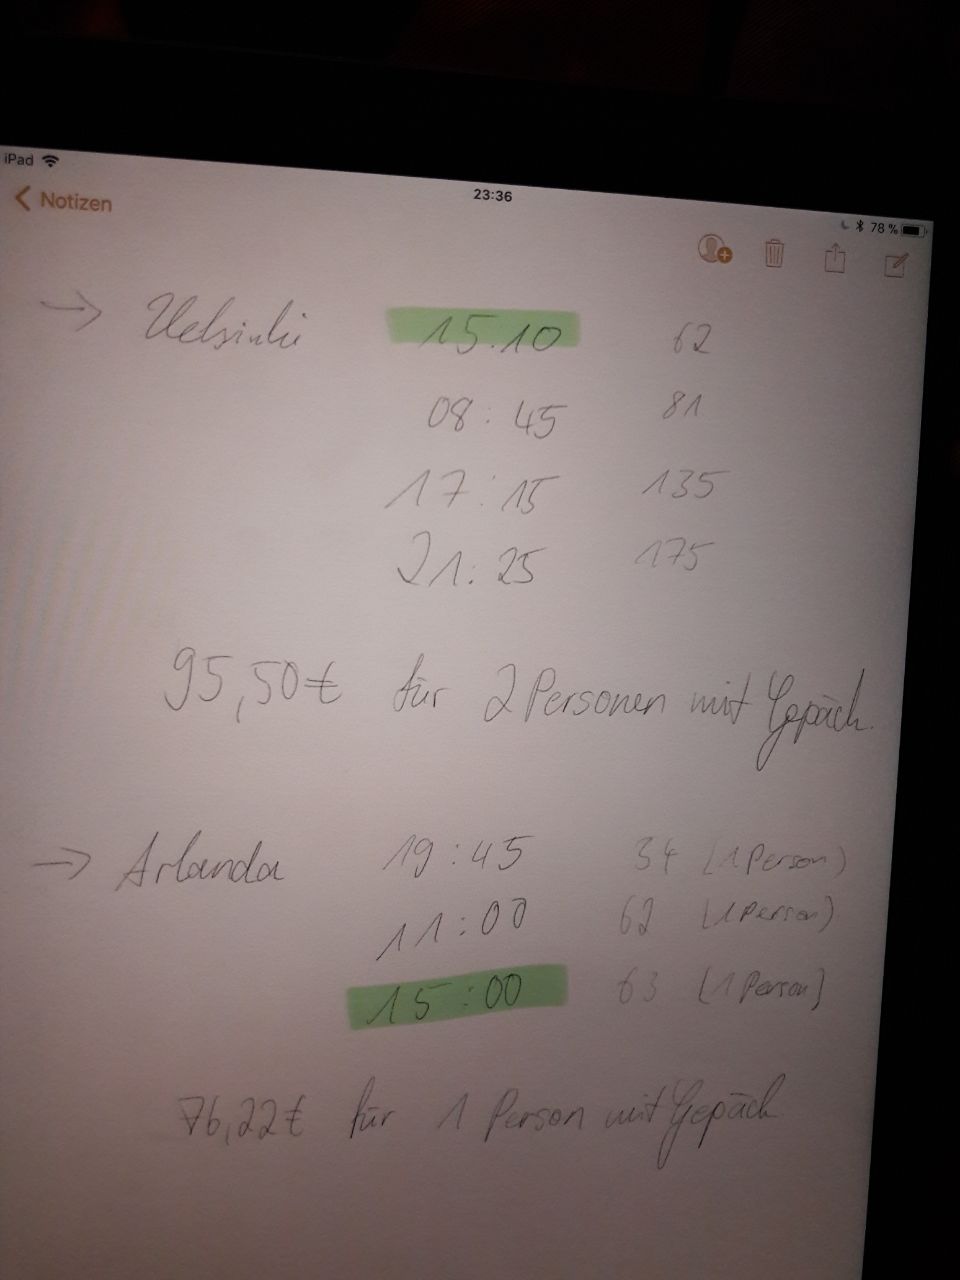 iPad
23:36
78 %
Notizen
→ Helsinki 15.10 62
08:45 81
17:15 135
21:25 175
95,50€ für 2 Personen mit Gepäck.
→ Arlanda 19:45 34 (1 Person)
11:00 62 (1 Person)
15:00 63 (1 Person)
76,22€ für 1 Person mit Gepäck